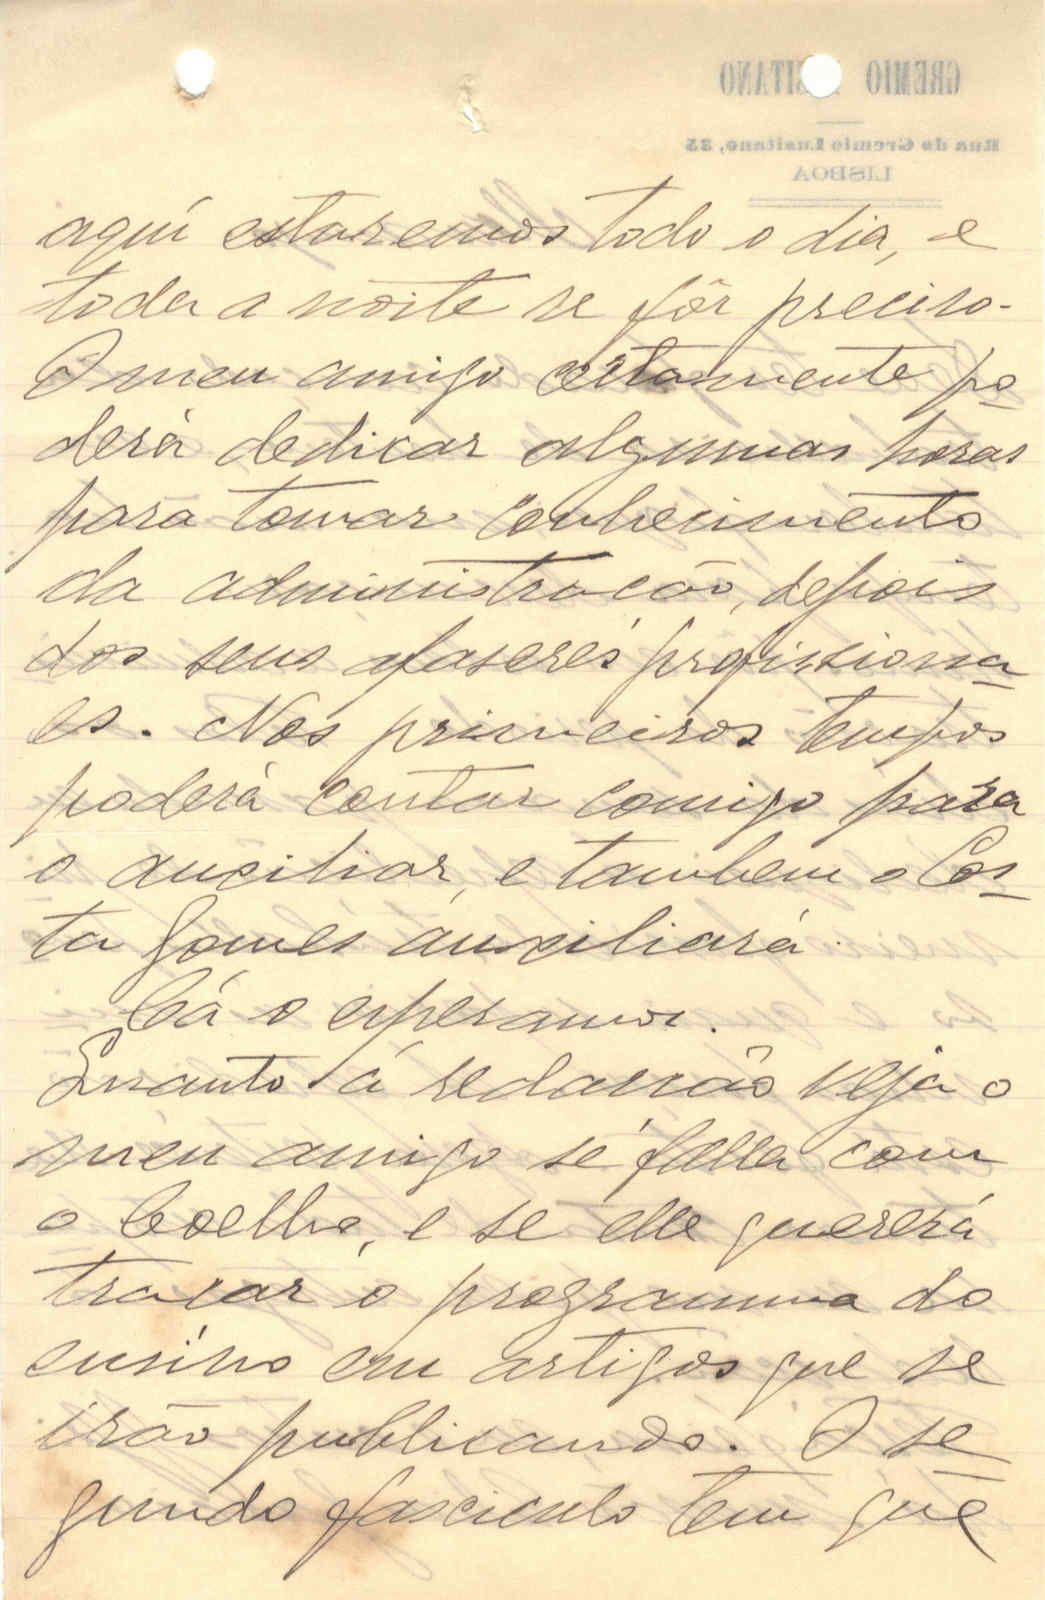 GREMIO LUSITANO
Rua do Gremio Lusitano, 35
LISBOA
aquí estaremos todo o dia, e
toda a noite se fôr preciso.
O meu amigo certamente po
derá dedicar algumas horas
para tomar conhecimento
da administração, depois
dos seus afaseres profissiona
es. Nos primeiros tempos
poderá contar comigo para
o auxiliar, e tambem o Cos
ta Gomes auxiliará.
Cá o esperamos.
Quanto á redacção veja o
meu amigo se falla com
o Coelho, e se elle quererá
traçar o programma do
ensino em artigos que se
irão publicando. O se
gundo fasciculo tem que